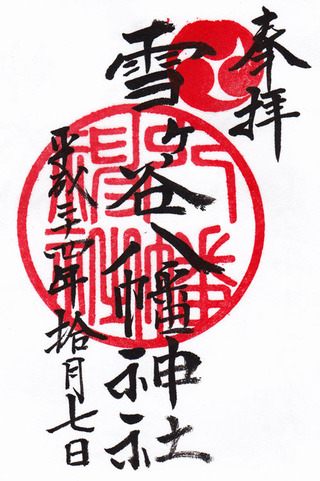 奉拝
雪ヶ谷八幡神社
平成二十四年拾月七日